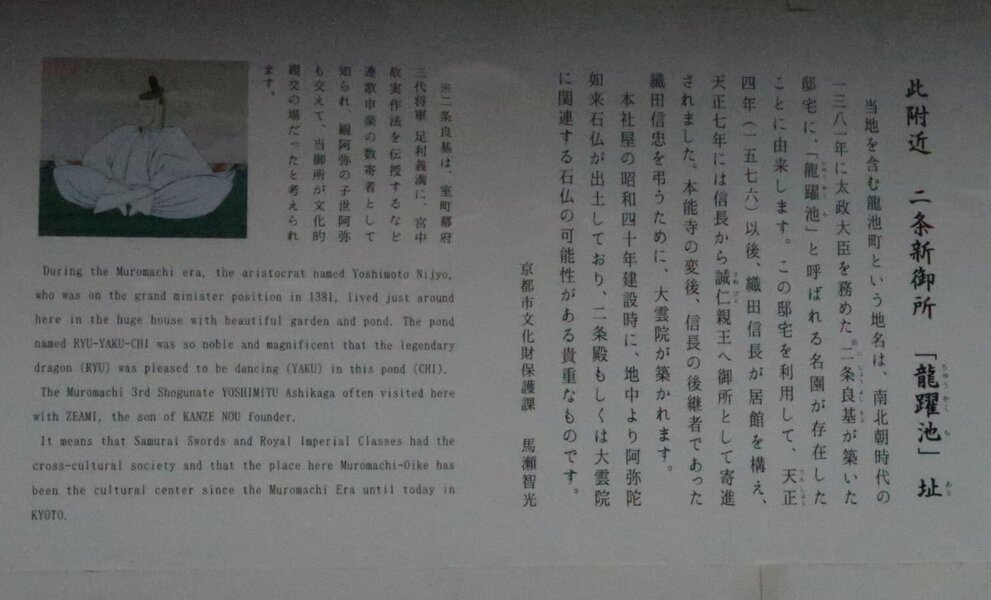 此附近 二条新御所 「龍躍池」址
当地を含む龍池町という地名は、南北朝時代の
一三八一年に太政大臣を務めた二条良基が築いた
邸宅に、「龍躍池」と呼ばれる名園が存在した
ことに由来します。この邸宅を利用して、天正
四年(一五七六)以後、織田信長が居館を構え、
天正七年には信長から誠仁親王へ御所として寄進
されました。本能寺の変後、信長の後継者であった
織田信忠を弔うために、大雲院が築かれます。
本社屋の昭和四十年建設時に、地中より阿弥陀
如来石仏が出土しており、二条殿もしくは大雲院
に関連する石仏の可能性がある貴重なものです。
京都市文化財保護課 馬瀬智光
※二条良基は、室町幕府
三代将軍 足利義満に、宮中
故実作法を伝授するなど
連歌申楽の数寄者として
知られ、観阿弥の子世阿弥
も交えて、当御所が文化的
親交の場だったと考えられ
ます。
During the Muromachi era, the aristocrat named Yoshimoto Nijyo,
who was on the grand minister position in 1381, lived just around
here in the huge house with beautiful garden and pond. The pond
named RYU-YAKU-CHI was so noble and magnificent that the legendary
dragon (RYU) was pleased to be dancing (YAKU) in this pond (CHI).
The Muromachi 3rd Shogunate YOSHIMITU Ashikaga often visited here
with ZEAMI, the son of KANZE NOU founder.
It means that Samurai Swords and Royal Imperial Classes had the
cross-cultural society and that the place here Muromachi-Oike has
been the cultural center since the Muromachi Era until today in
KYOTO.